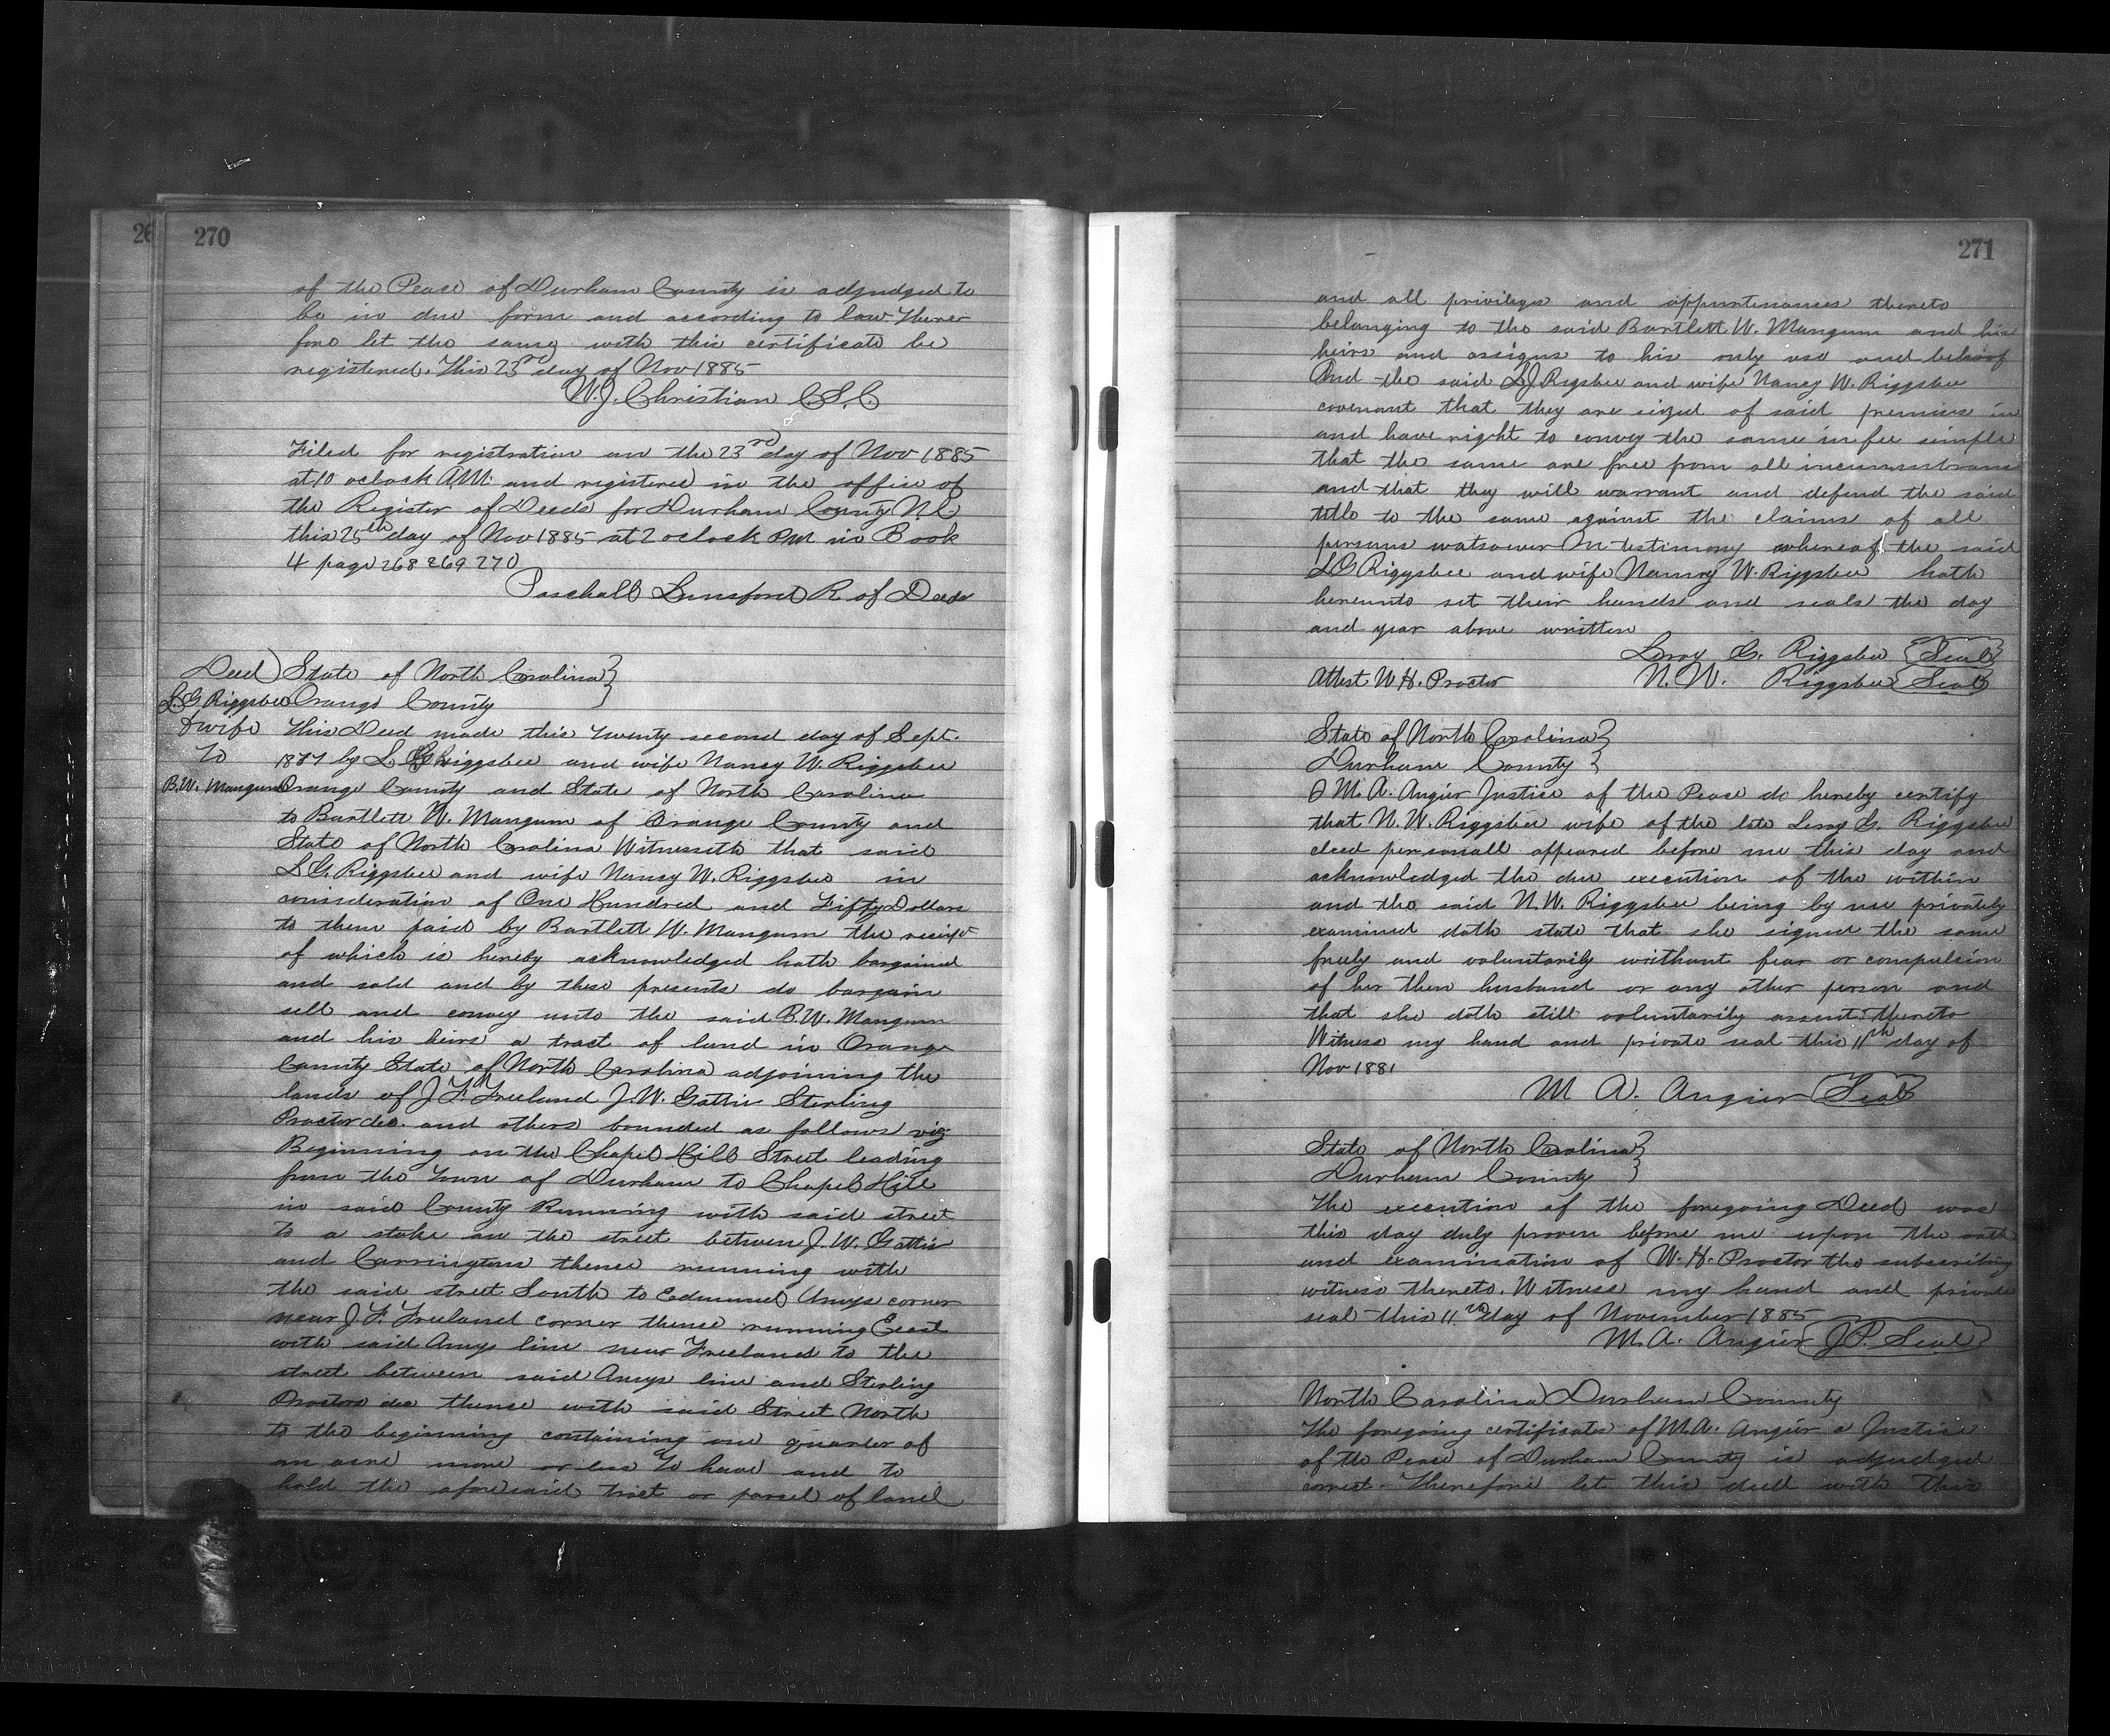 26
270
of the Peace of Durham County is adjudged to
be in due form and according to law. Therer
fore let the same with this certificate be
registered. This 23rd day of Nov 1885
W. J. Christian C.S.C.
Filed for registration on the 23rd day of Nov 1885
at 10 oclock A.M. and registered in the office of
the Register of Deeds for Durham County N.C
this 25th day of Nov 1885 at 2 oclock P.M in Book
4 page 268 269 270
Paschall Lunsford R of Deeds
Deed) State of North Carolina }
L.G Riggsbee Orange County }
& wife This Deed made this twenty second day of Sept.
To 1877 by L G Riggsbee and wife Nancy W. Riggsbee
B.W. Mangum Orange County and State of North Carolina
to Bartlett W. Mangum of Orange County and
State of North Carolina Witnesseth that said
L G. Riggsbee and wife Nancy W. Riggsbee in
consideration of One Hundred and Fifty Dollars
to them paid by Bartlett W. Mangum the receipt
of which is hereby acknowledged hath bargained
and sold and by these presents do bargain
sell and convey unto the said B.W. Mangum
and his heirs a tract of land in Orange
County State of North Carolina adjoining the
lands of J F. Freeland J. W. Gattis Sterling
Proctor dec. and others bounded as follows viz
Beginning on the Chapel Hill Street leading
from the Town of Durham to Chapel Hill
in said County Running with said street
to a stake on the street betwen J. W. Gattis
and Carringtons thence running with
the said street South to Edmund Amys corner
near J F. Freeland corner thence running East
with said Amys line near Freeland to the
street between said Amys line and Sterling
Proctors dec thence with said Street North
to the beginning containing one quarter of
an acre more or less To have and to
hold the aforesaid tract or parcel of land
271
and all privileges and appurtenances thereto
belonging to the said Bartlett W. Mangum and his
heirs and assigns to his only use and behoof
And the said L J Rigsbee and wife Nancy W. Riggsbee
covenant that they are sized of said premises in
and have right to convey the same in fee simple
that the same are free from all incumbrans
and that they will warrant and defend the said
title to the same against the claims of all
persons watsoever In testimony whereof the said
L G Riggsbee and wife Nancy W. Riggsbee hath
hereunto set their hands and seals the day
and year above written
Leroy G. Riggsbee (Seal)
Attest W. H. Proctor N. W. Riggsbee (Seal)
State of North Carolina }
Durham County }
I M. A. Angier Justice of the Peace do hereby certify
that N. W. Riggsbee wife of the late Leroy G. Riggsbee
decd personall appeared before me this day and
acknowledged the due execution of the within
and the said N. W. Riggsbee being by me privately
examined doth state that she signed the same
freely and voluntarily writhout fear or compulsion
of her then husband or any other person and
that she doth still voluntarily assent thereto
Witness my hand and private seal this 11th day of
Nov 1881
M A. Angier (Seal)
State of North Carolina }
Durham County }
The execution of the foregoing Deed was
this day duly proven before me upon the oath
and examination of W. H. Proctor the subscribing
witness thereto. Witness my hand and private
seal this 11th day of November 1885
M. A. Angier (J.P. Seal)
North Carolina Durham County
The foregoing certificates of M. A. Angier a Justice
of the Peace of Durham County is adjudged
correct. Therefore let this deed with this